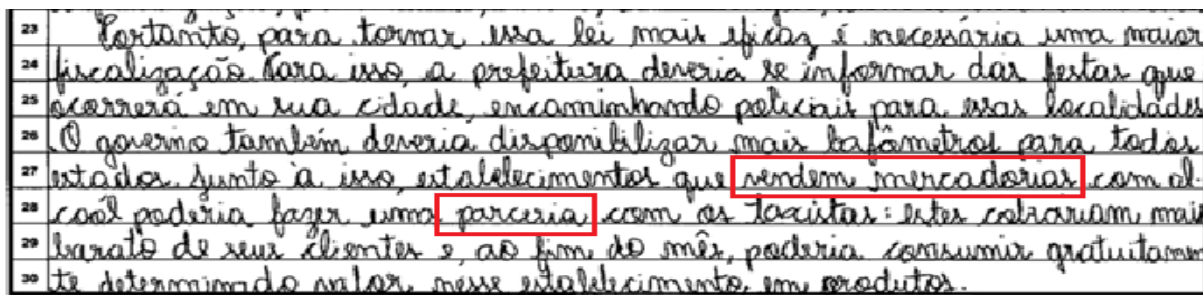 23 Portanto, para tornar essa lei mais eficaz, é necessária uma maior
24 fiscalização. Para isso, a prefeitura deveria se informar das festas que
25 ocorrerá em sua cidade, encaminhando policiais para essas localidades.
26 O governo também deveria disponibilizar mais bafômetros para todos
27 estados. Junto à isso, estabelecimentos que vendem mercadorias com ál-
28 cool poderia fazer uma parceria com os taxistas: estes cobrariam mais
29 barato de seus clientes e, ao fim do mês, poderia consumir gratuitamen
30 te determinado valor, nesse estabelecimento, em produtos.